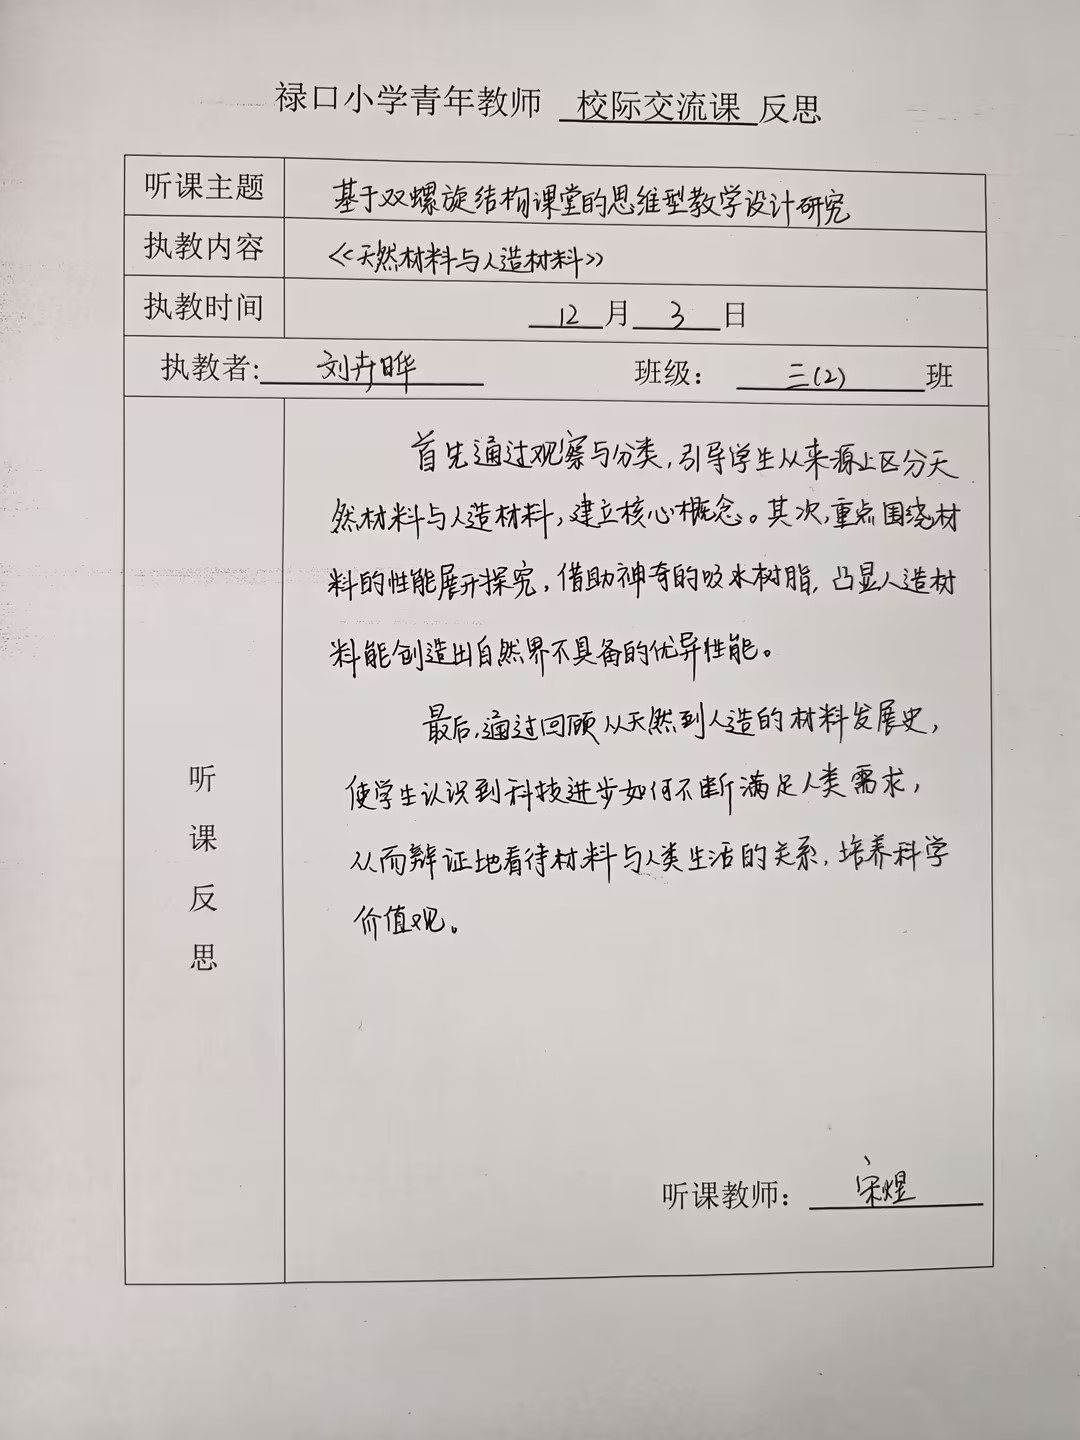 禄口小学青年教师 校际交流课 反思
听课主题 基于双螺旋结构课堂的思维型教学设计研究
执教内容 《天然材料与人造材料》
执教时间 12月3日
执教者: 刘卉晔 班级： 三(2) 班
听课反思
首先通过观察与分类，引导学生从来源上区分天
然材料与人造材料，建立核心概念。其次，重点围绕材
料的性能展开探究，借助神奇的吸水树脂，凸显人造材
料能创造出自然界不具备的优异性能。
最后，通过回顾从天然到人造的材料发展史，
使学生认识到科技进步如何不断满足人类需求，
从而辩证地看待材料与人类生活的关系，培养科学
价值观。
听课教师： 宋煜